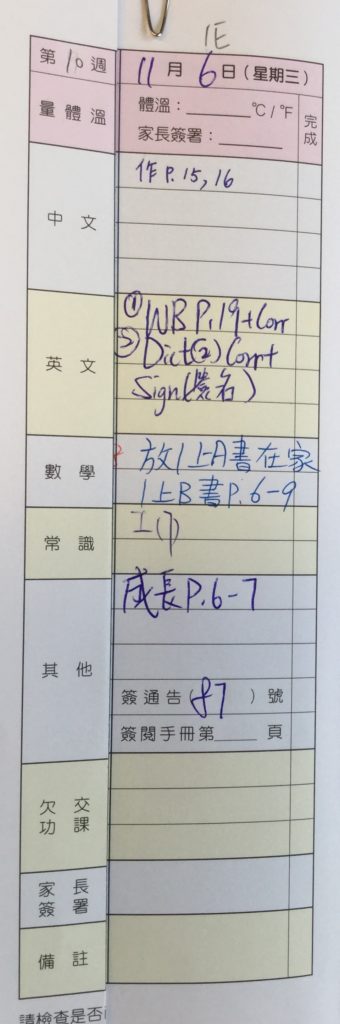 1E
第10週 11月6日(星期三)
量體溫 體溫：______℃/℉ 完成
家長簽署：______
中文 作P.15,16
英文 ① WB P.19+Corr
② Dict(2) Corr+
Sign(簽名)
數學 放1上A書在家
1上B書P.6-9
常識 工(7)
其他 成長P.6-7
簽通告(87)號
簽閱手冊第____頁
欠交功課
家長簽署
備註
請檢查是否